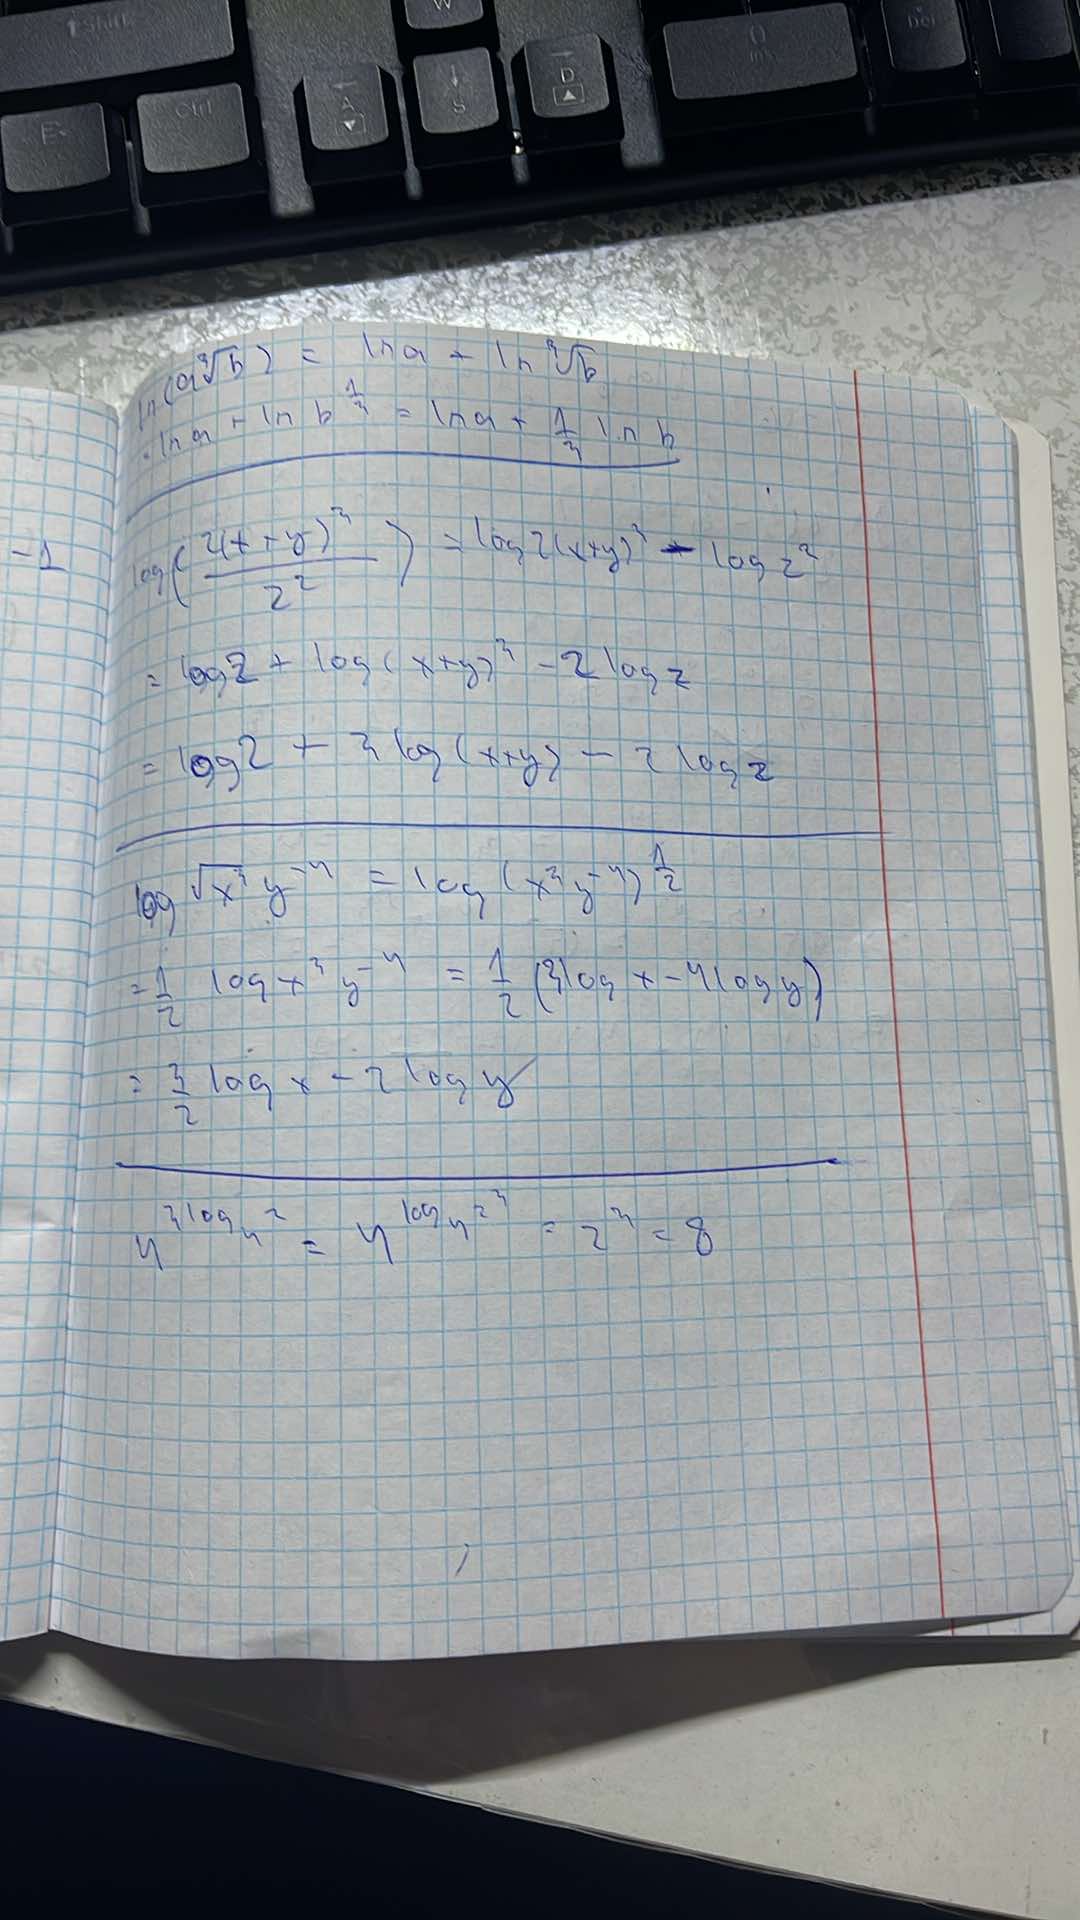 Shift
W
E
Ctrl
A
S
D
0
Ins
Del
ln(a∛b) = ln a + ln ∛b
= ln a + ln b^(1/3) = ln a + 1/3 ln b
-1
log(2(x+y)³/z²) = log 2(x+y)³ - log z²
= log 2 + log(x+y)³ - 2 log z
= log 2 + 3 log(x+y) - 2 log z
log √x³y⁻⁴ = log (x³y⁻⁴)^(1/2)
= 1/2 log x³y⁻⁴ = 1/2 (3 log x - 4 log y)
= 3/2 log x - 2 log y
4^(3 log₄ 2) = 4^(log₄ 2³) = 2³ = 8